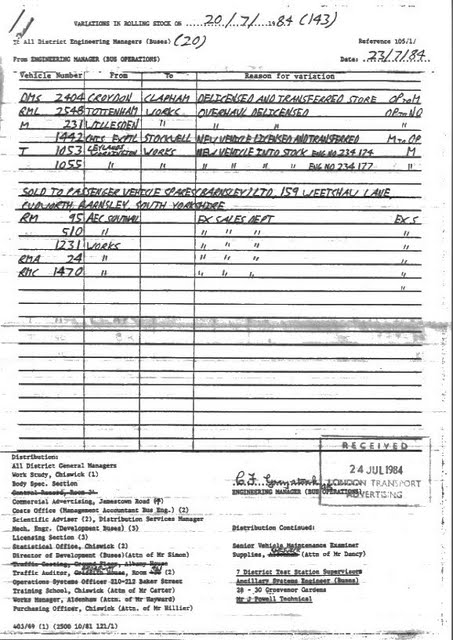 VARIATIONS IN ROLLING STOCK ON 20/7/1984 (143)
To All District Engineering Managers (Buses) (20)
Reference 105/1/
From ENGINEERING MANAGER (BUS OPERATIONS)
Date: 23/7/84
Vehicle Number From To Reason for variation
DMS 2404 CROYDON CLAPHAM DELICENSED AND TRANSFERRED STORE OP to M
RML 2548 TOTTENHAM WORKS OVERHAUL DELICENSED OP to NO
M 231 WILLESDEN " " " "
1442 STOCKWELL NEW VEHICLE LICENSED AND TRANSFERRED M to OP
T 1053 LEYLANDS WORKINGTON WORKS NEW VEHICLE INTO STOCK ENG NO 234 174 M
1055 " " " " " " ENG NO 234 177 "
SOLD TO PASSENGER VEHICLE SPARES (BARNSLEY) LTD, 159 WEETSHAW LANE,
CUDWORTH BARNSLEY, SOUTH YORKSHIRE
RM 95 AEC SOUTHALL EX SALES DEPT EX S
510 " " " " "
1231 WORKS " " " "
RMA 24 " " " " "
RMC 1470 " " " " "
"
Distribution:
All District General Managers
Work Study, Chiswick (1)
Body Spec. Section
Central Record, Room
Commercial Advertising, Jamestown Road
Costs Office (Management Accountant Bus Eng.) (2)
Scientific Adviser (2), Distribution Services Manager
Mech. Engr. (Development Buses) (3)
Licensing Section (3)
Statistical Office, Chiswick (2)
Director of Development (Buses)(Attn of Mr Simon)
Traffic Costing, Ground Floor, Albany House
Traffic Auditor, House, Room (2)
Operations Systems Officer 210-212 Baker Street
Training School, Chiswick (Attn of Mr Carter)
Works Manager, Aldenham (Attn. of Mr Hayward)
Purchasing Officer, Chiswick (Attn of Mr Hillier)
ENGINEERING MANAGER (BUS OPERATIONS)
RECEIVED
24 JUL 1984
LONDON TRANSPORT
ADVERTISING
Distribution Continued:
Senior Vehicle Maintenance Examiner
Supplies, (Attn of Mr Dancy)
7 District Test Station Supervisors
Ancillary Systems Engineer (Buses)
28 - 30 Grosvenor Gardens
Mr J Powell Technical
403/69 (1) (2500 10/81 121/1)